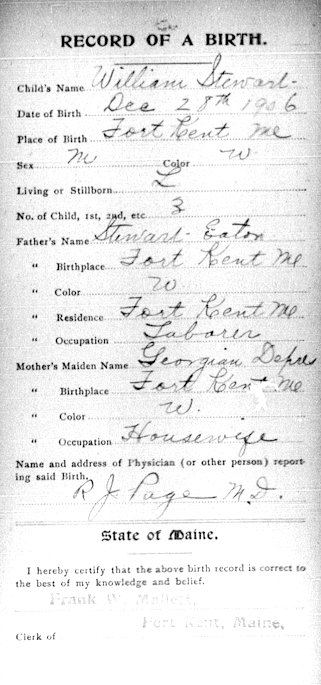 RECORD OF A BIRTH.
Child's Name William Stewart
Date of Birth Dec 28th 1906
Place of Birth Fort Kent Me
Sex M Color W
Living or Stillborn L
No. of Child, 1st, 2nd, etc 3
Father's Name Stewart Eaton
" Birthplace Fort Kent Me
" Color W
" Residence Fort Kent Me
" Occupation Laborer
Mother's Maiden Name Georgian
" Birthplace Fort Kent Me
" Color W.
" Occupation Housewife
Name and address of Physician (or other person) report-
ing said Birth,
R J Page M.D.
State of Maine.
I hereby certify that the above birth record is correct to
the best of my knowledge and belief.
Frank W.
Fort Kent, Maine,
Clerk of